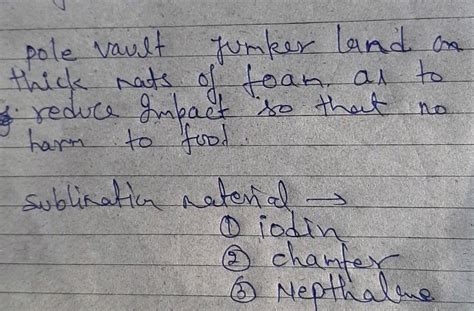 pole vault jumker land on
thick mats of foam as to
reduce Impact so that no
harm to food.
sublimation material →
① iodin
② chamfer
③ Nepthalene